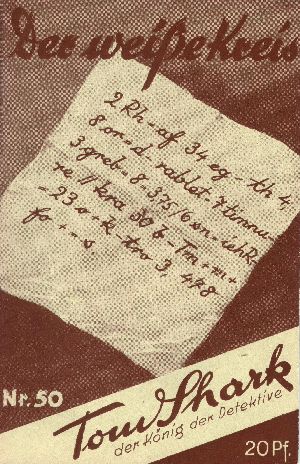 Der weiße Kreis
2 Rh - af 34 eg - th 4,
8 on - d - rablet -
3 greb - 8 - 375/6 on -
re // kra 30 b - Tm + m +
- 23 a + k - tro 3, 4 + 8
fo + - s.
Nr. 50
Tom Shark
der König der Detektive
20 Pf.